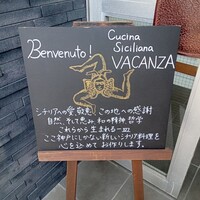 Benvenuto!
Cucina
Siciliana
VACANZA
シチリアへの愛、敬意、この地への感謝
自然、そして恵み、和の精神、哲学
これらから生まれる一皿
ここ神戸にしかない新しいシチリア料理を
心を込めてお作りします。